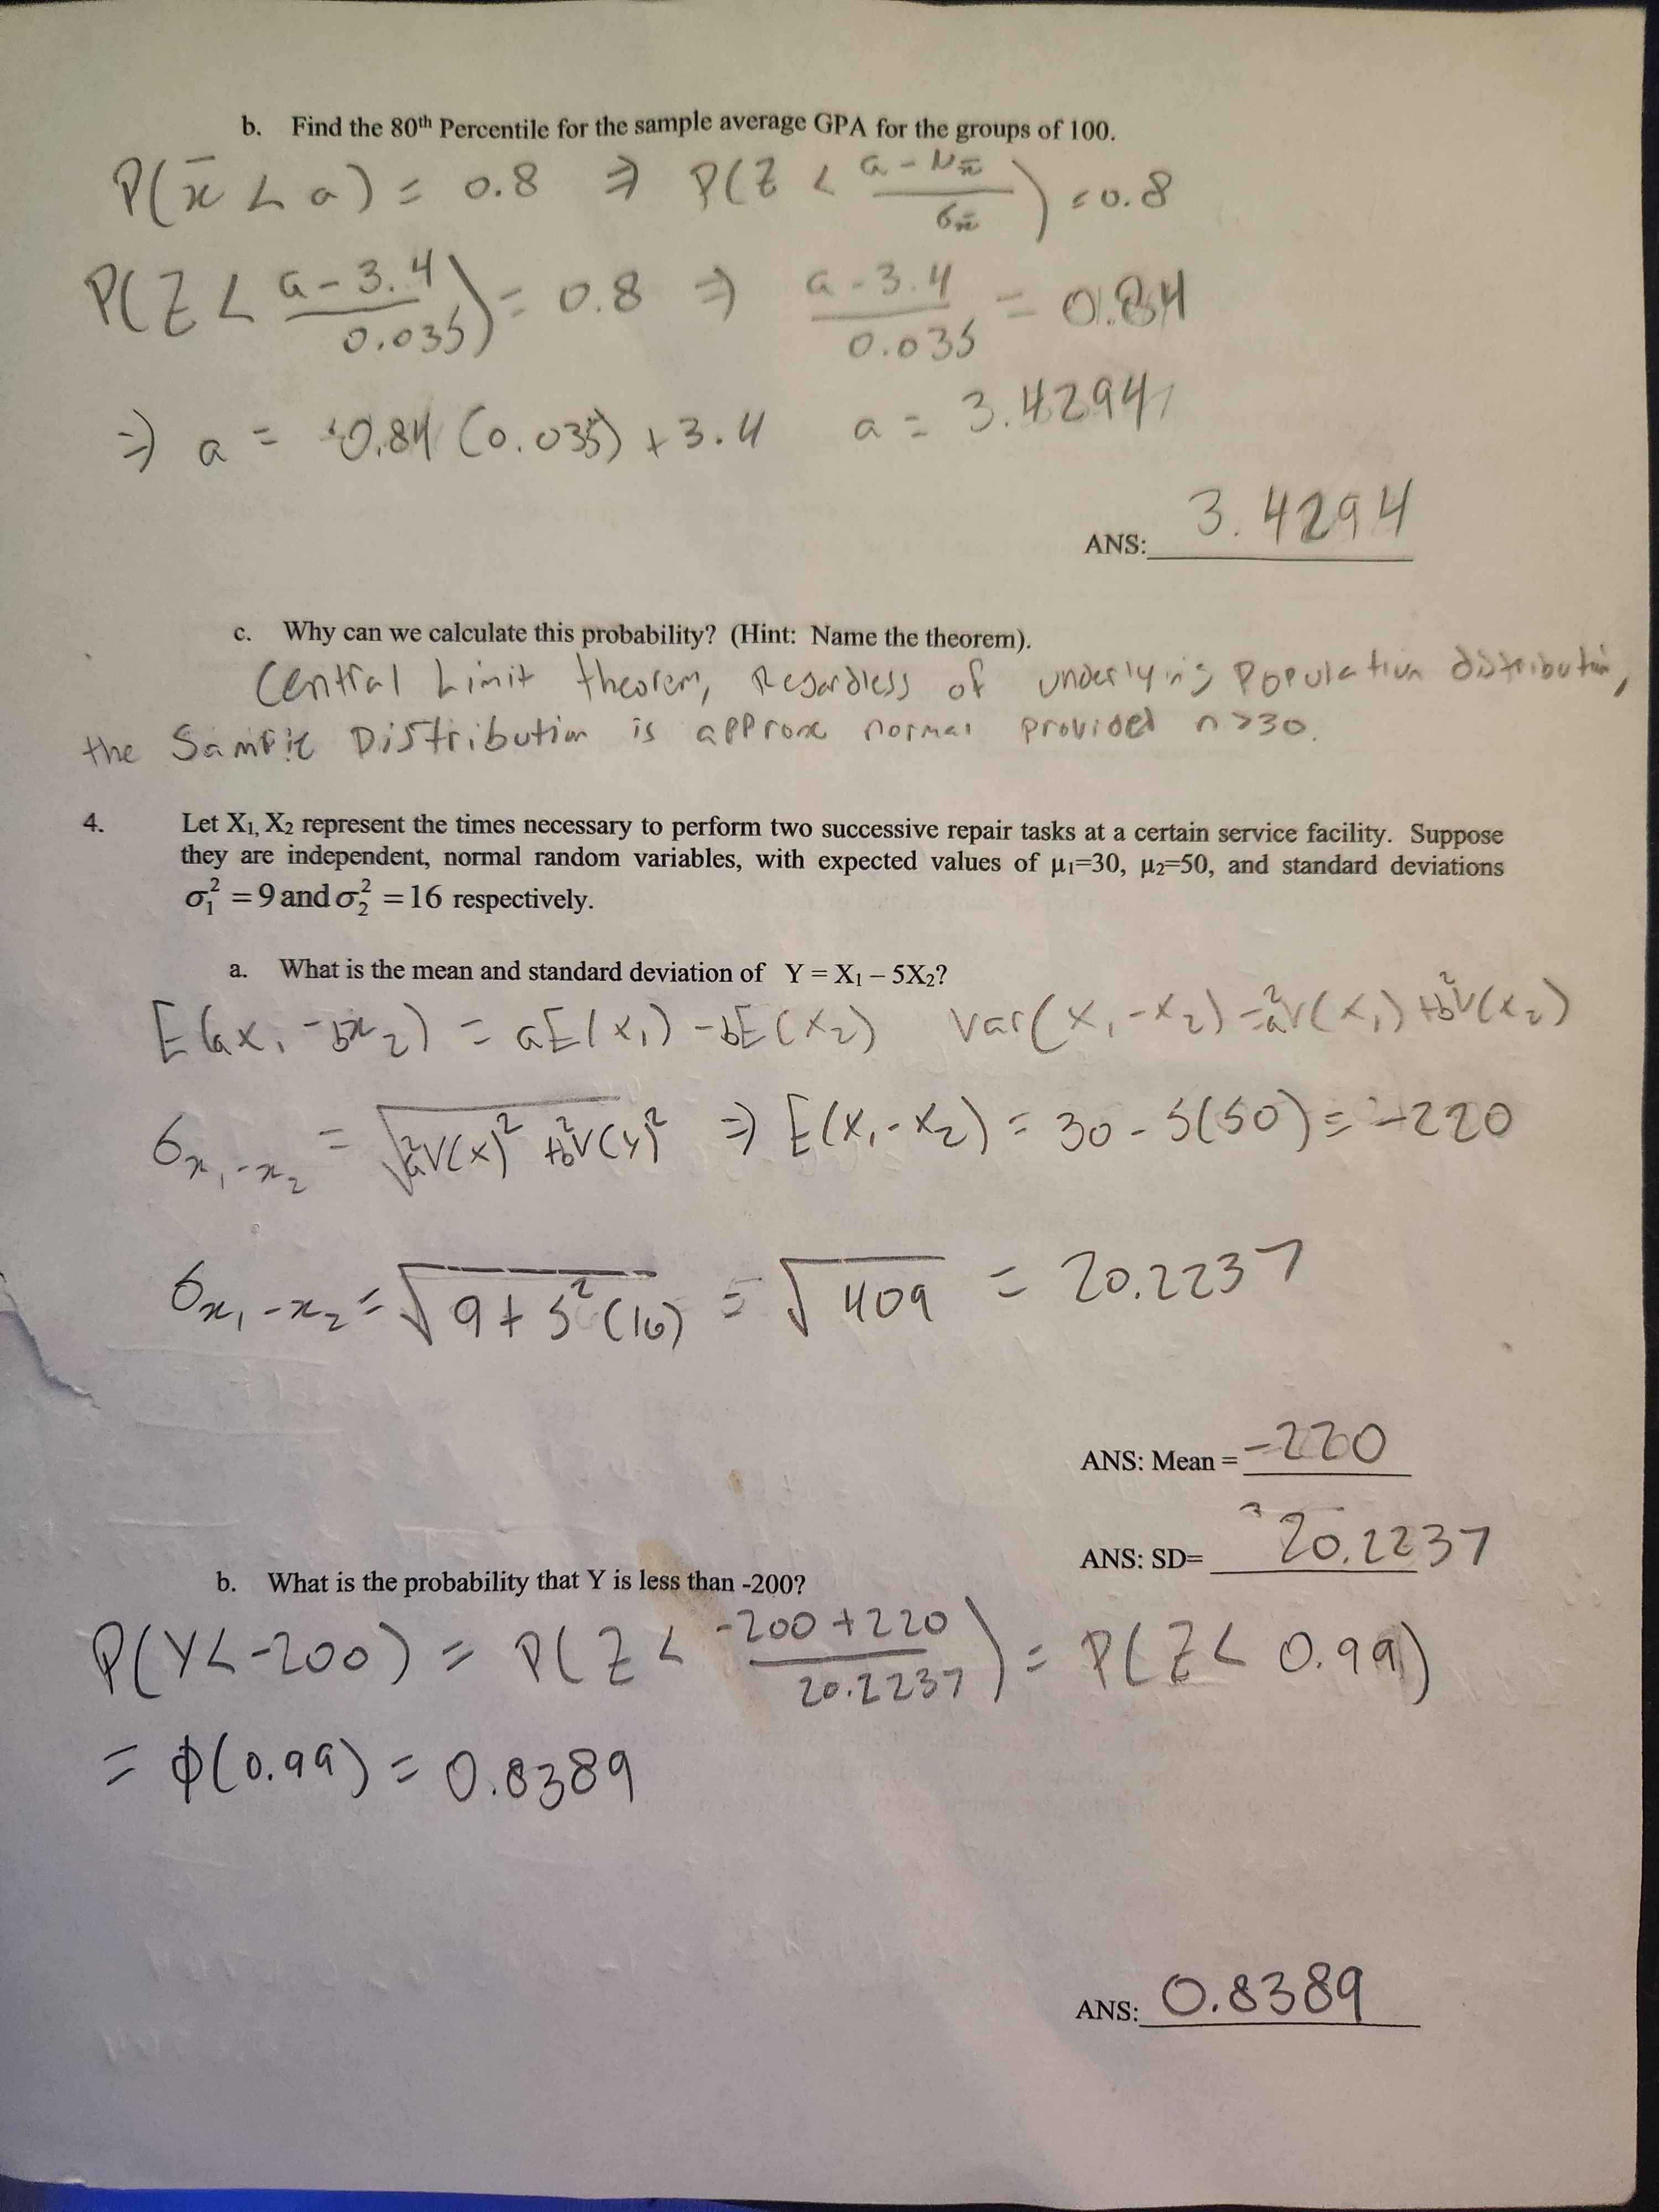 b. Find the 80th Percentile for the sample average GPA for the groups of 100.
P(x̄ < a) = 0.8 ⇒ P(Z < (a - μx̄)/σx̄) = 0.8
P(Z < (a - 3.4)/0.035) = 0.8 ⇒ (a - 3.4)/0.035 = 0.84
⇒ a = 0.84 (0.035) + 3.4 a = 3.4294
ANS: 3.4294
c. Why can we calculate this probability? (Hint: Name the theorem).
Central Limit theorem, Regardless of underlying Population distribution,
the Sample Distribution is approx normal provided n > 30.
4. Let X₁, X₂ represent the times necessary to perform two successive repair tasks at a certain service facility. Suppose
they are independent, normal random variables, with expected values of μ₁=30, μ₂=50, and standard deviations
σ₁² = 9 and σ₂² = 16 respectively.
a. What is the mean and standard deviation of Y = X₁ – 5X₂?
E(ax₁ - bx₂) = aE(x₁) - bE(x₂) Var(x₁ - x₂) = a²V(x₁) + b²V(x₂)
σx₁-x₂ = √(a²V(x)² + b²V(y)²) ⇒ E(x₁ - x₂) = 30 - 5(50) = -220
σx₁-x₂ = √(9 + 5²(16)) = √409 = 20.2237
ANS: Mean = -220
ANS: SD= 20.2237
b. What is the probability that Y is less than -200?
P(Y < -200) = P(Z < (-200 + 220)/20.2237) = P(Z < 0.99)
= Φ(0.99) = 0.8389
ANS: 0.8389